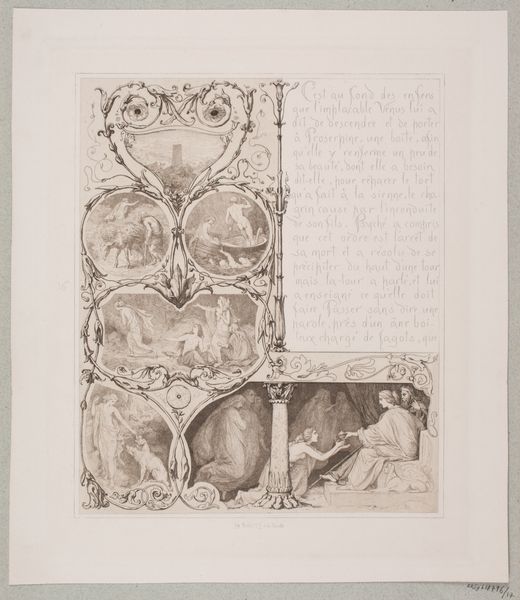 C'est au fond des enfers
que l'implacable Vénus lui a
dit de descendre et de porter
à Proserpine, une boîte, afin
qu'elle y renferme un peu de
sa beauté, dont elle a besoin,
dit-elle, pour réparer le tort
qu'a fait à la sienne, le cha
grin causé par l'inconduite
de son fils. Psyché a compris
que cet ordre est l'arrêt de
sa mort et a résolu de se
précipiter du haut d'une tour
mais la tour a parlé, et lui
a enseigné ce qu'elle doit
faire. Passer sans dire une
parole, près d'un âne boi-
teux chargé de fagots, que